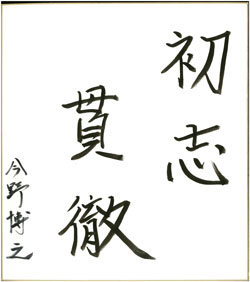 初志
貫徹
今野博之